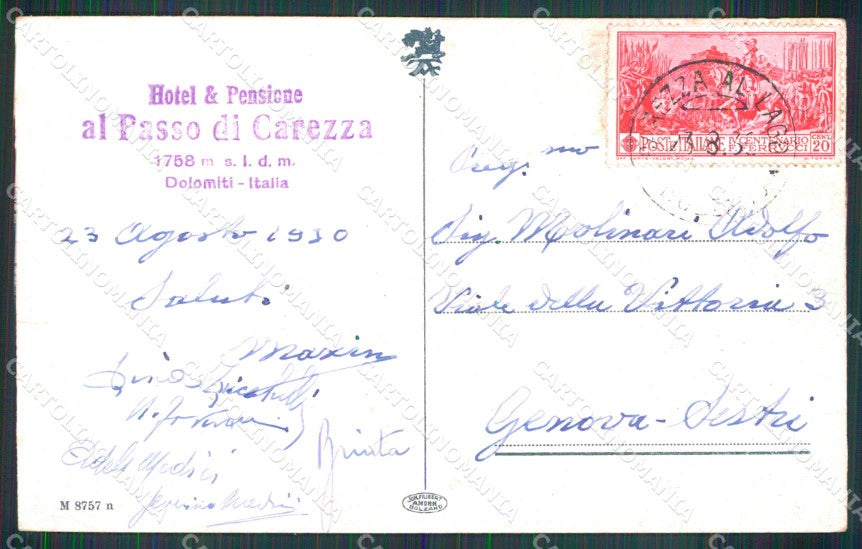 Hotel & Pensione
al Passo di Carezza
1758 m s. l. d. m.
Dolomiti - Italia
23 Agosto 1930
Saluti
Maxim
Brinta
M 8757 n
JOH. FILIBERT
AMONN
BOLZANO
POSTE ITALIANE IV CENTENARIO
FERRUCCI
CENT. 20
EZZA AL LAGO
Preg.mo
Sig. Molinari Adolfo
Viale della Vittoria 3
Genova - Sestri
CARTOLINOMANIA